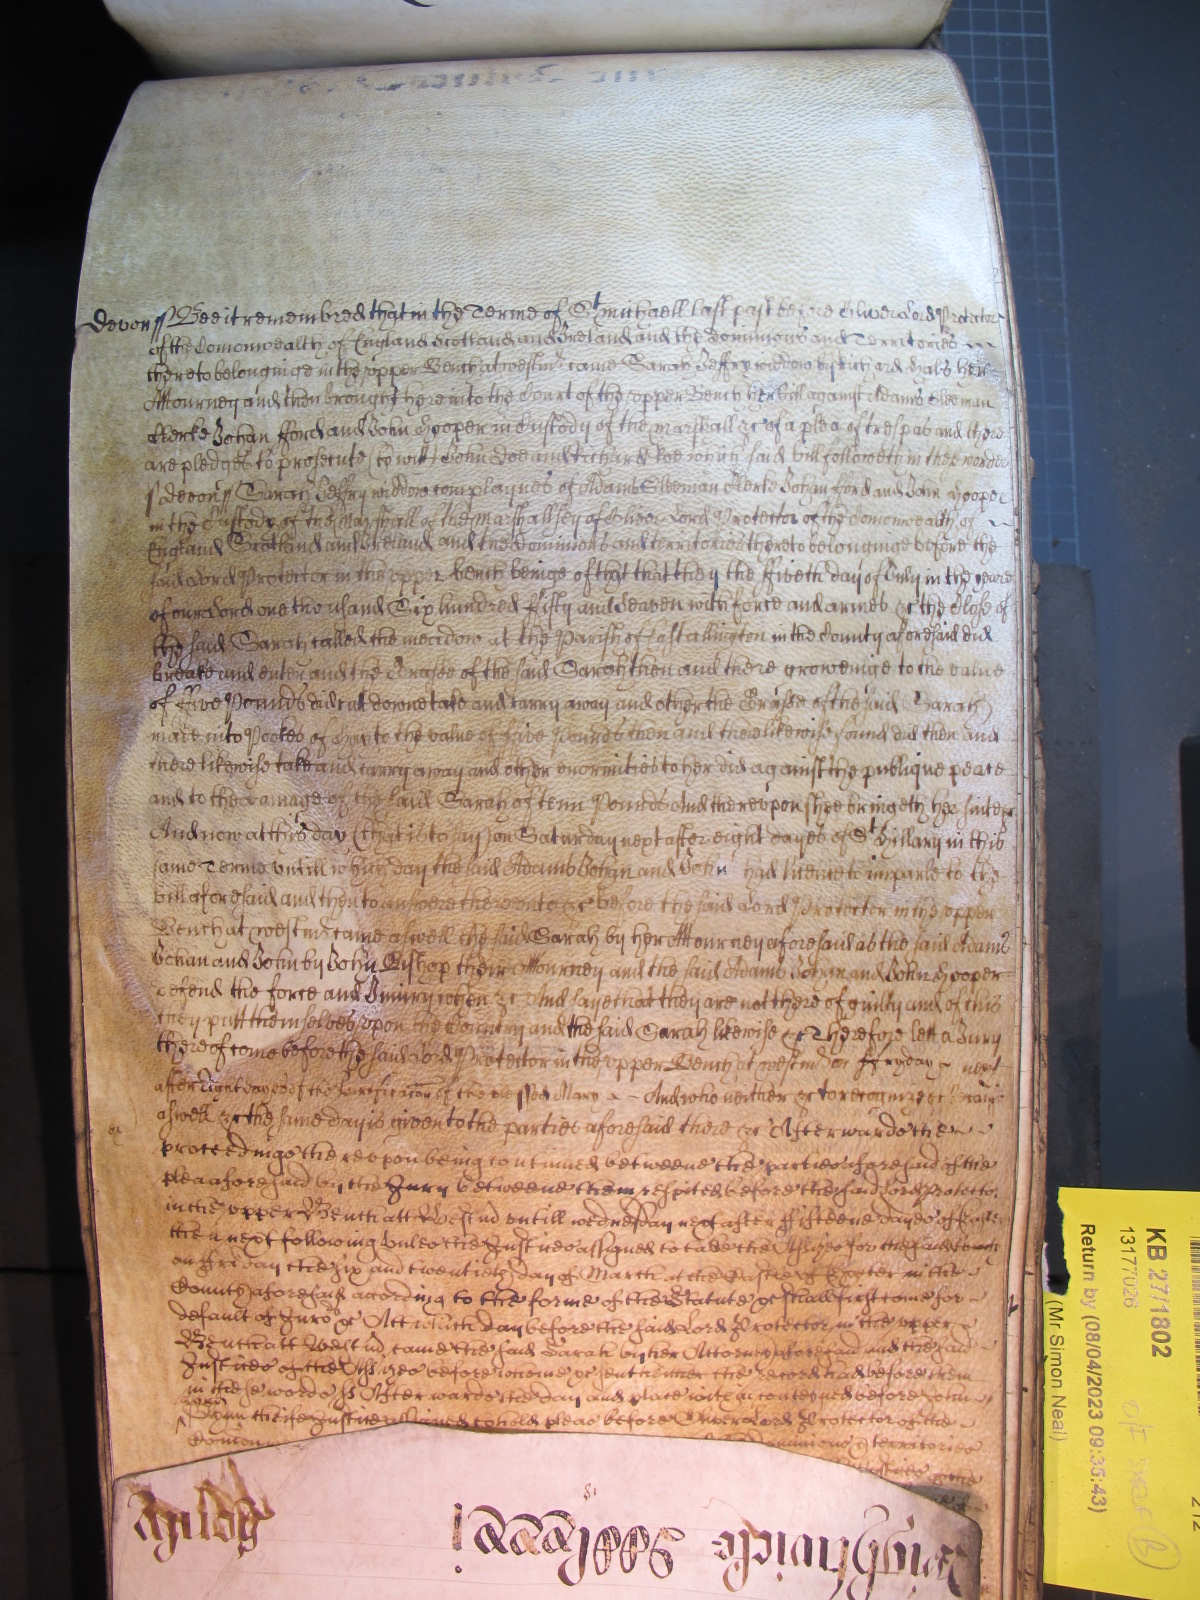 Devon ss Bee it remembred that in the Terme of St Michaell last past before Oliver Lord Protector
of the Comonwealth of England Scotland and Ireland and the Dominions and Territories
thereto belonginge in the upper Bench at westmr came Sarah Jeffry widdow by Richard Hals her
Attourney and then brought here into the Court of the upper Bench her bill against Adams Sleeman
Clerke Johan fford and John Hooper in Custody of the Marshall &c of a plea of trespas and there
are pledges to prosecute (to witt) John Doe and Richard Roe which said bill followeth in these wordes
ss Devon ss Sarah Jeffry widdow complaynes of Adams Sleeman Clerke Johan fford and John Hooper
in the Custody of the Marshall of the Marshallsey of Oliver Lord Protector of the Comonwealth of
England Scotland and Ireland and the Dominions and territories thereto belonginge before the
said Lord Protector in the upper bench beinge of that that they the ffiveth day of July in the yeare
of our Lord one thousand Six hundred Fifty and Seaven with force and armes &c the Close of
the said Sarah called the meadow at the Parish of East allington in the County aforesaid did
breake and enter and the Grasse of the said Sarah then and there groweinge to the value
of Five Pounds did cut downe take and carry away and other the Grasse of the said Sarah
made into Pookes of Hay to the value of Five Pounds then and there likewise found did then and
there likewise take and carry away and other enormities to her did against the publique peace
and to the damage of the said Sarah of tenn Pounds And thereupon shee bringeth her suite &c
And now at this day (that is to say) on Saturday next after eight dayes of St Hillary in this
same Terme untill which day the said Adams Johan and John had licence to imparle to the
bill aforesaid and then to answere thereunto &c before the said Lord Protector in the upper
Bench at westmr came aswell the said Sarah by her Attourney aforesaid as the said Adams
Johan and John by John Bishop their Attourney and the said Adams Johan and John Hooper
defend the force and Iniury when &c And saye that they are not thereof guilty and of this
they putt themselves upon the Country and the said Sarah likewise &c Therefore lett a Jury
thereof come before the said Lord Protector in the upper Bench at westmr on ffryday next
after Eight dayes of the Purificacon of the blessed Mary And who neither &c to recognize &c because
aswell &c the same day is given to the parties aforesaid there &c Afterwards the
proceedings thereupon being continued betweene the parties aforesaid of the
plea aforesaid by the Jury betweene them respited before the said Lord Protector
in the upper Bench att Westmr untill wednesday next after ffifteene dayes of Easter
then next following unles the Justices assigned to take the Assizes for the said County
on Friday the six and twentieth day of March at the Castle of Exeter in the
County aforesaid according to the forme of the Statute &c shall first come for
default of Jurors &c Att which day before the said Lord Protector in the upper
Bench att Westmr came the said Sarah by her Attorney aforesaid and the said
Justices of the Assizes before whome &c sent hither the record had before them
in these words ss Afterwards the day and place within conteyned before John
Glynn Cheife Justice assigned to hold pleas before Oliver Lord Protector of the
Comon dominions & territories
Justices
KB 27/1802
13177026
Return by (08/04/2023 09:35:43)
(Mr Simon Neal)
212